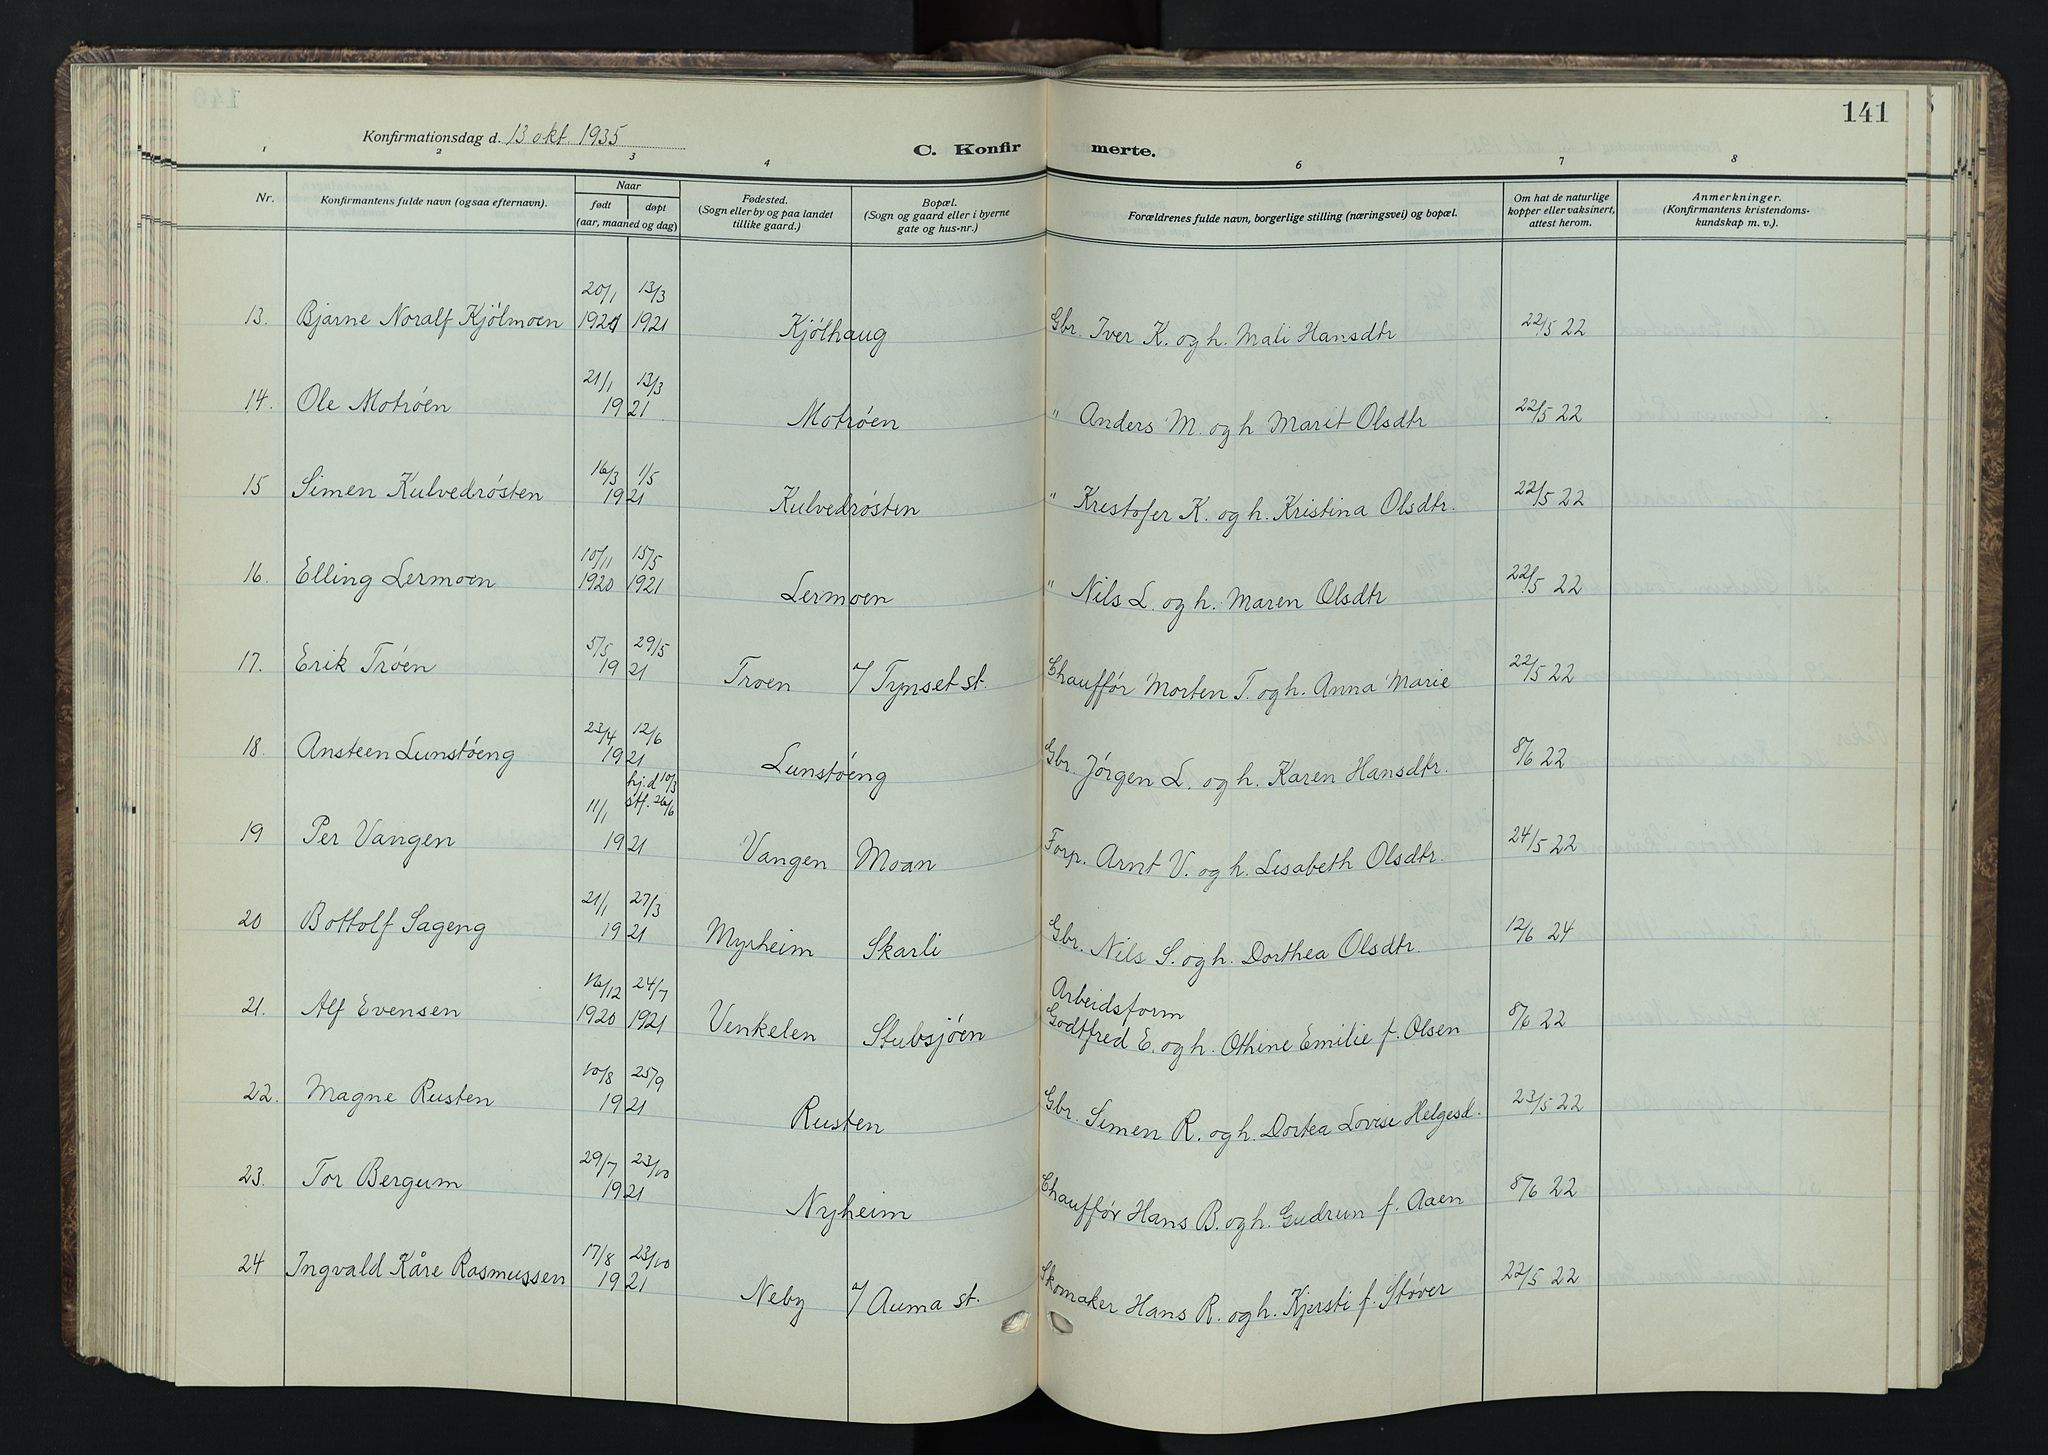 141
Konfirmationsdag d. 13 okt. 1935
C. Konfirmerte.
1 2 3 4 5 6 7 8
Nr. Konfirmantens fulde navn (ogsaa efternavn). Naar født døpt (aar, maaned og dag) Fødested. (Sogn eller by og paa landet tillike gaard.) Bopæl. (Sogn og gaard eller i byerne gate og hus-nr.) Forældrenes fulde navn, borgerlige stilling (næringsvei) og bopæl. Om hat de naturlige kopper eller vaksinert, attest herom. Anmerkninger. (Konfirmantens kristendomskundskap m. v.).
13. Bjarne Noralf Kjølmoen 20/1 1921 13/3 1921 Kjølhaug Gbr. Iver K. og h. Mali Hansdtr 22/5 22
14. Ole Motrøen 21/1 13/3 1921 Motrøen " Anders M. og h Marit Olsdtr 22/5 22
15 Simen Kulvedrøsten 16/3 1/5 1921 Kulvedrøsten " Krestofer K. og h. Kristina Olsdtr. 22/5 22
16. Elling Lermoen 10/11 1920 15/5 1921 Lermoen " Nils L. og h. Maren Olsdtr 22/5 22
17. Erik Trøen 5/5 29/5 1921 Troen / Tynset st. Chauffør Morten T. og h. Anna Marie 22/5 22
18. Ansteen Lunstøeng 23/4 12/6 1921 Lunstøeng Gbr. Jørgen L. og h. Karen Hansdtr. 8/6 22
19 Per Vangen 11/1 hj.d 10/3 stf. 26/6 1921 Vangen Moan Forp. Arnt V. og h. Lisabeth Olsdtr. 24/5 22
20 Bottolf Sageng 21/1 27/3 1921 Myrheim Skarli Gbr. Nils S. og h. Dorthea Olsdtr. 12/6 24
21. Alf Evensen 16/12 1920 24/7 1921 Venkelen Stubsjøen Arbeidsform Godtfred E. og h. Othine Emilie f. Olsen 8/6 22
22. Magne Rusten 10/8 25/9 1921 Rusten Gbr. Simen R. og h. Dortea Lovise Helgesd. 23/5 22
23. Tor Bergum 29/7 23/10 1921 Nyheim Chauffør Hans B. og h. Gudrun f. Aaen 8/6 22
24 Ingvald Kåre Rasmussen 17/8 23/10 1921 Neby / Auma st. Skomaker Hans R. og h. Kjersti f. Støver 22/5 22